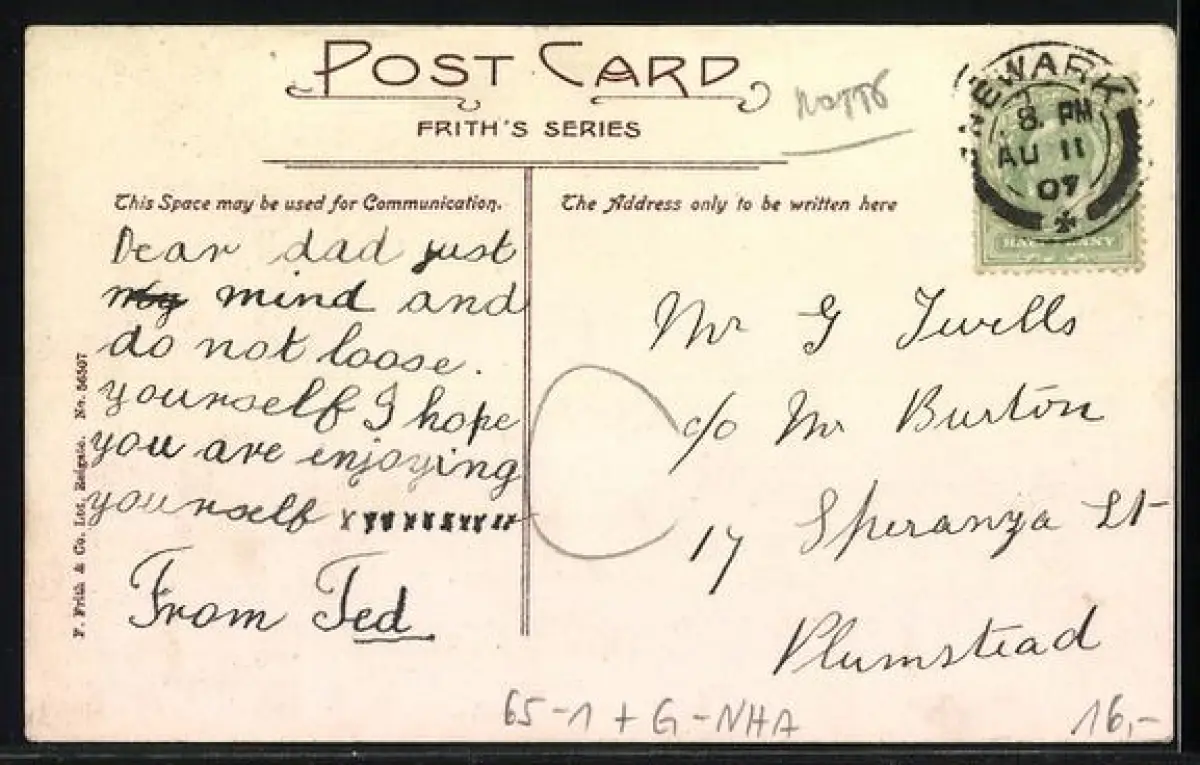 POST CARD
FRITH'S SERIES
NOTTS
NEWARK
8. PM
AU 11
07
HALFPENNY
This Space may be used for Communication.
The Address only to be written here
Dear dad just
my mind and
do not loose.
yourself I hope
you are enjoying
yourself x x x x x x x x x x
From Ted
Mr G Twells
c/o Mr Burton
17 Speranza St
Plumstead
F. Frith & Co. Ltd. Reigate. No. 56507
65-1 + G-NHA
16,-